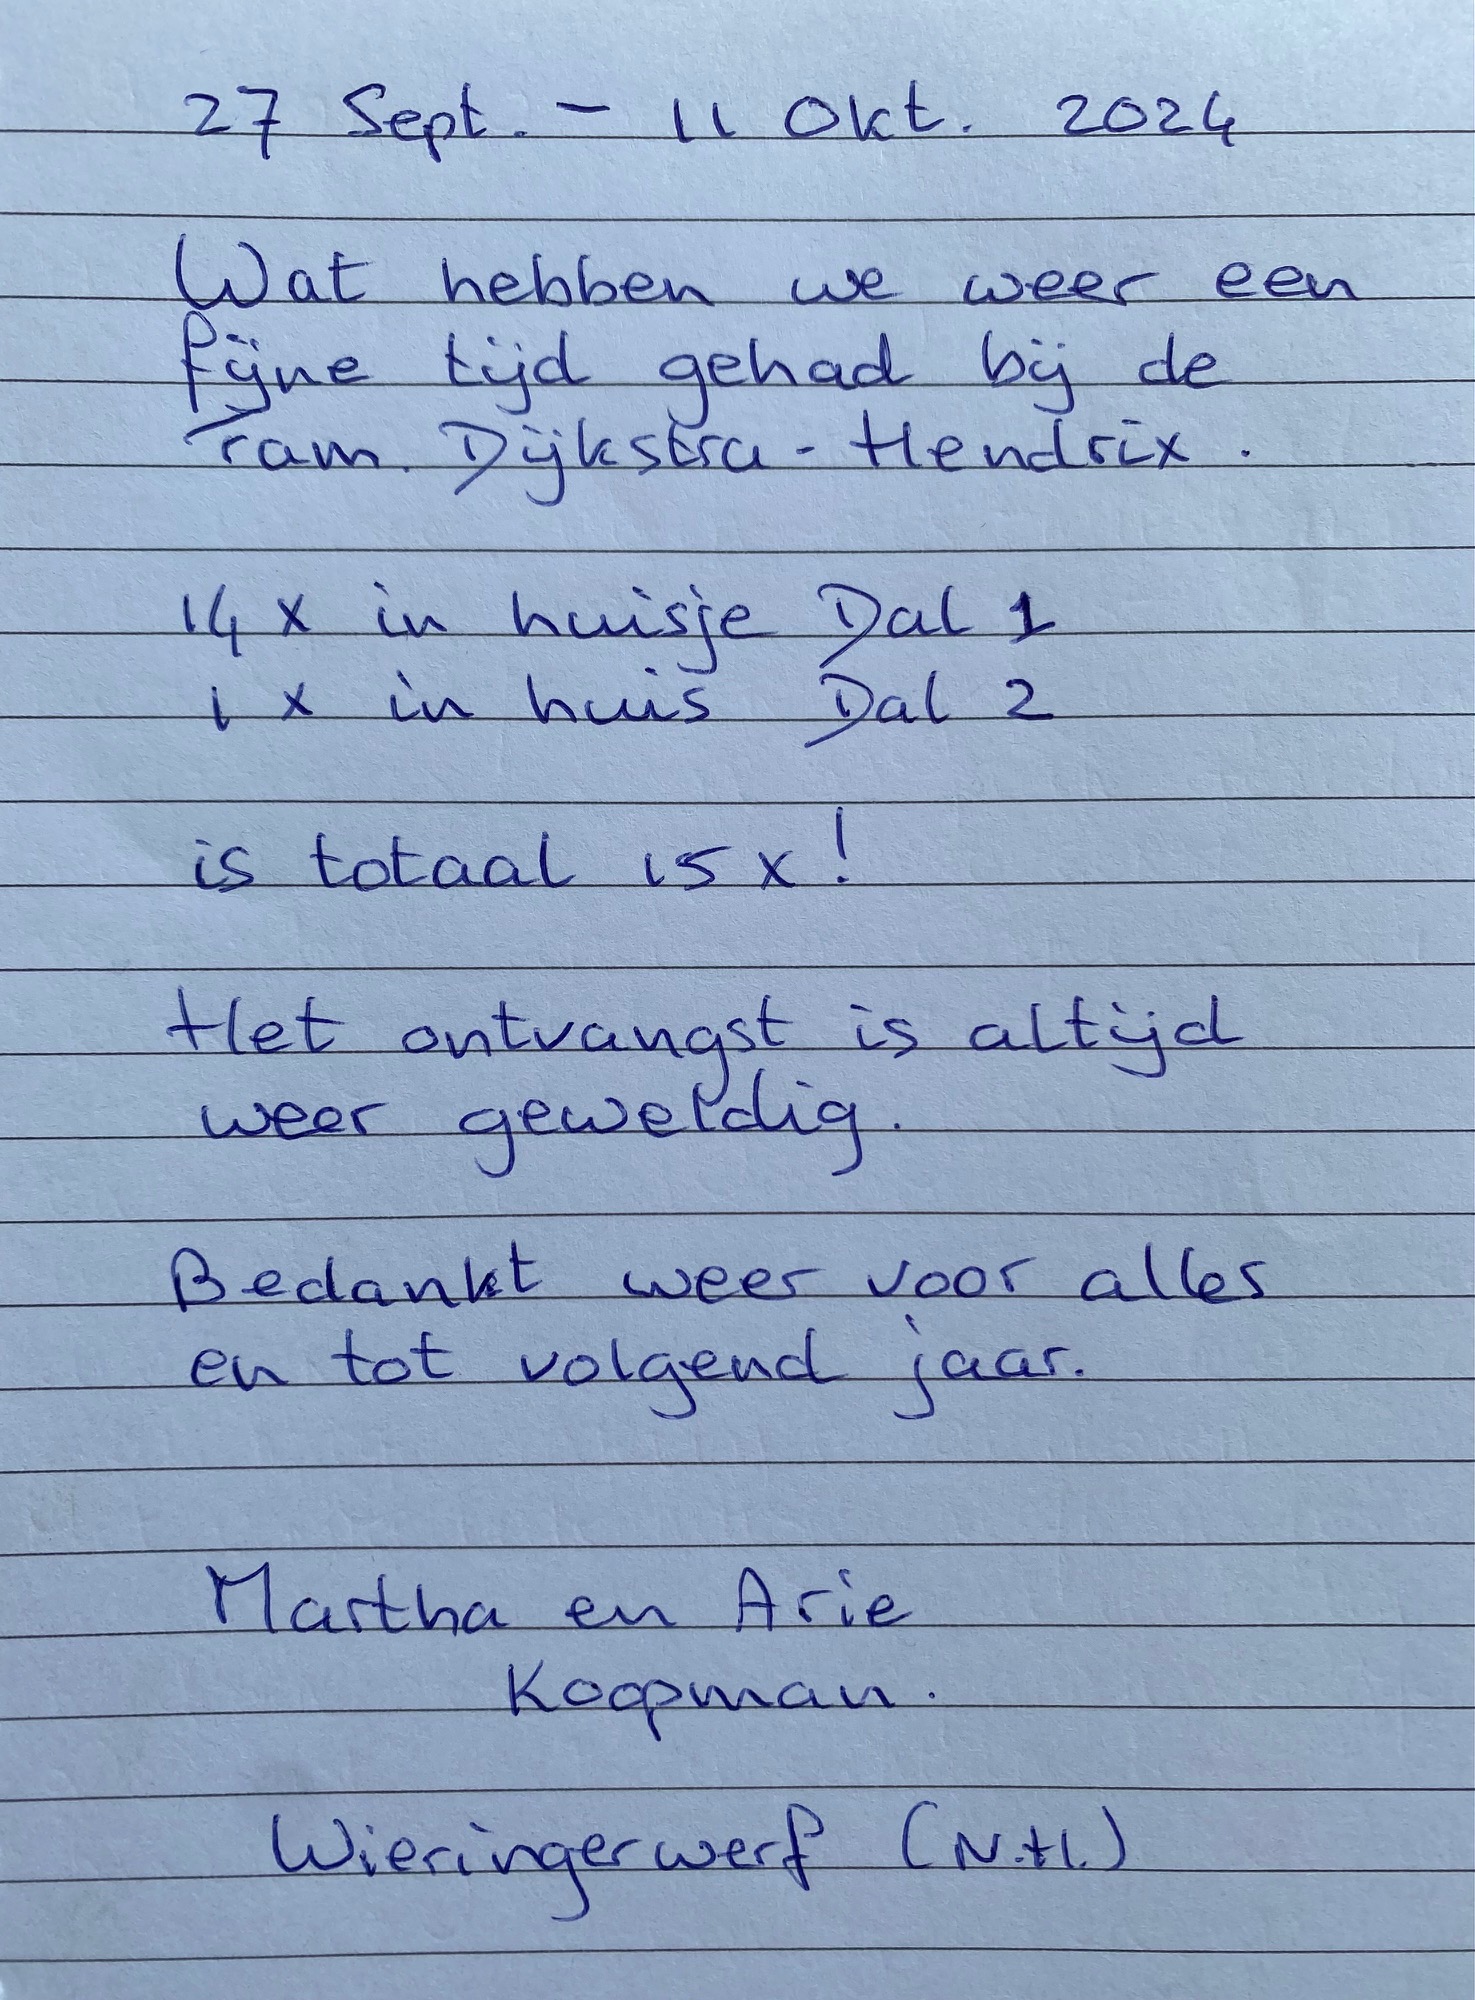 27 Sept. - 11 Okt. 2024
Wat hebben we weer een
fijne tijd gehad bij de
Fam. Dijkstra - Hendrix.
14 x in huisje Dal 1
1 x in huis Dal 2
is totaal 15 x!
Het ontvangst is altijd
weer geweldig.
Bedankt weer voor alles
en tot volgend jaar.
Martha en Arie
Koopman.
Wieringerwerf (N.H.)